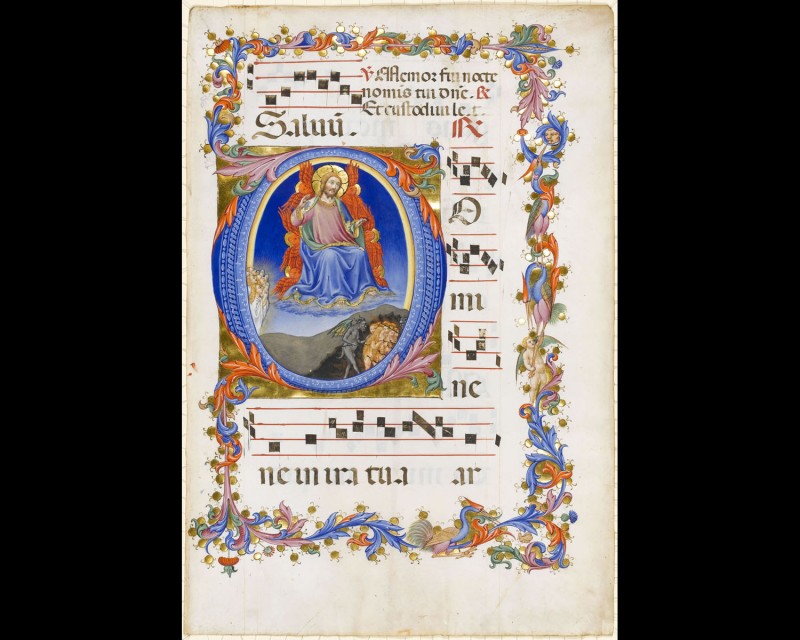 ℣ Memor fui nocte
nomis tui dne. ℟
Et custodiui le
Saluũ ℟
D O
mi
ne
ne in ira tua ar